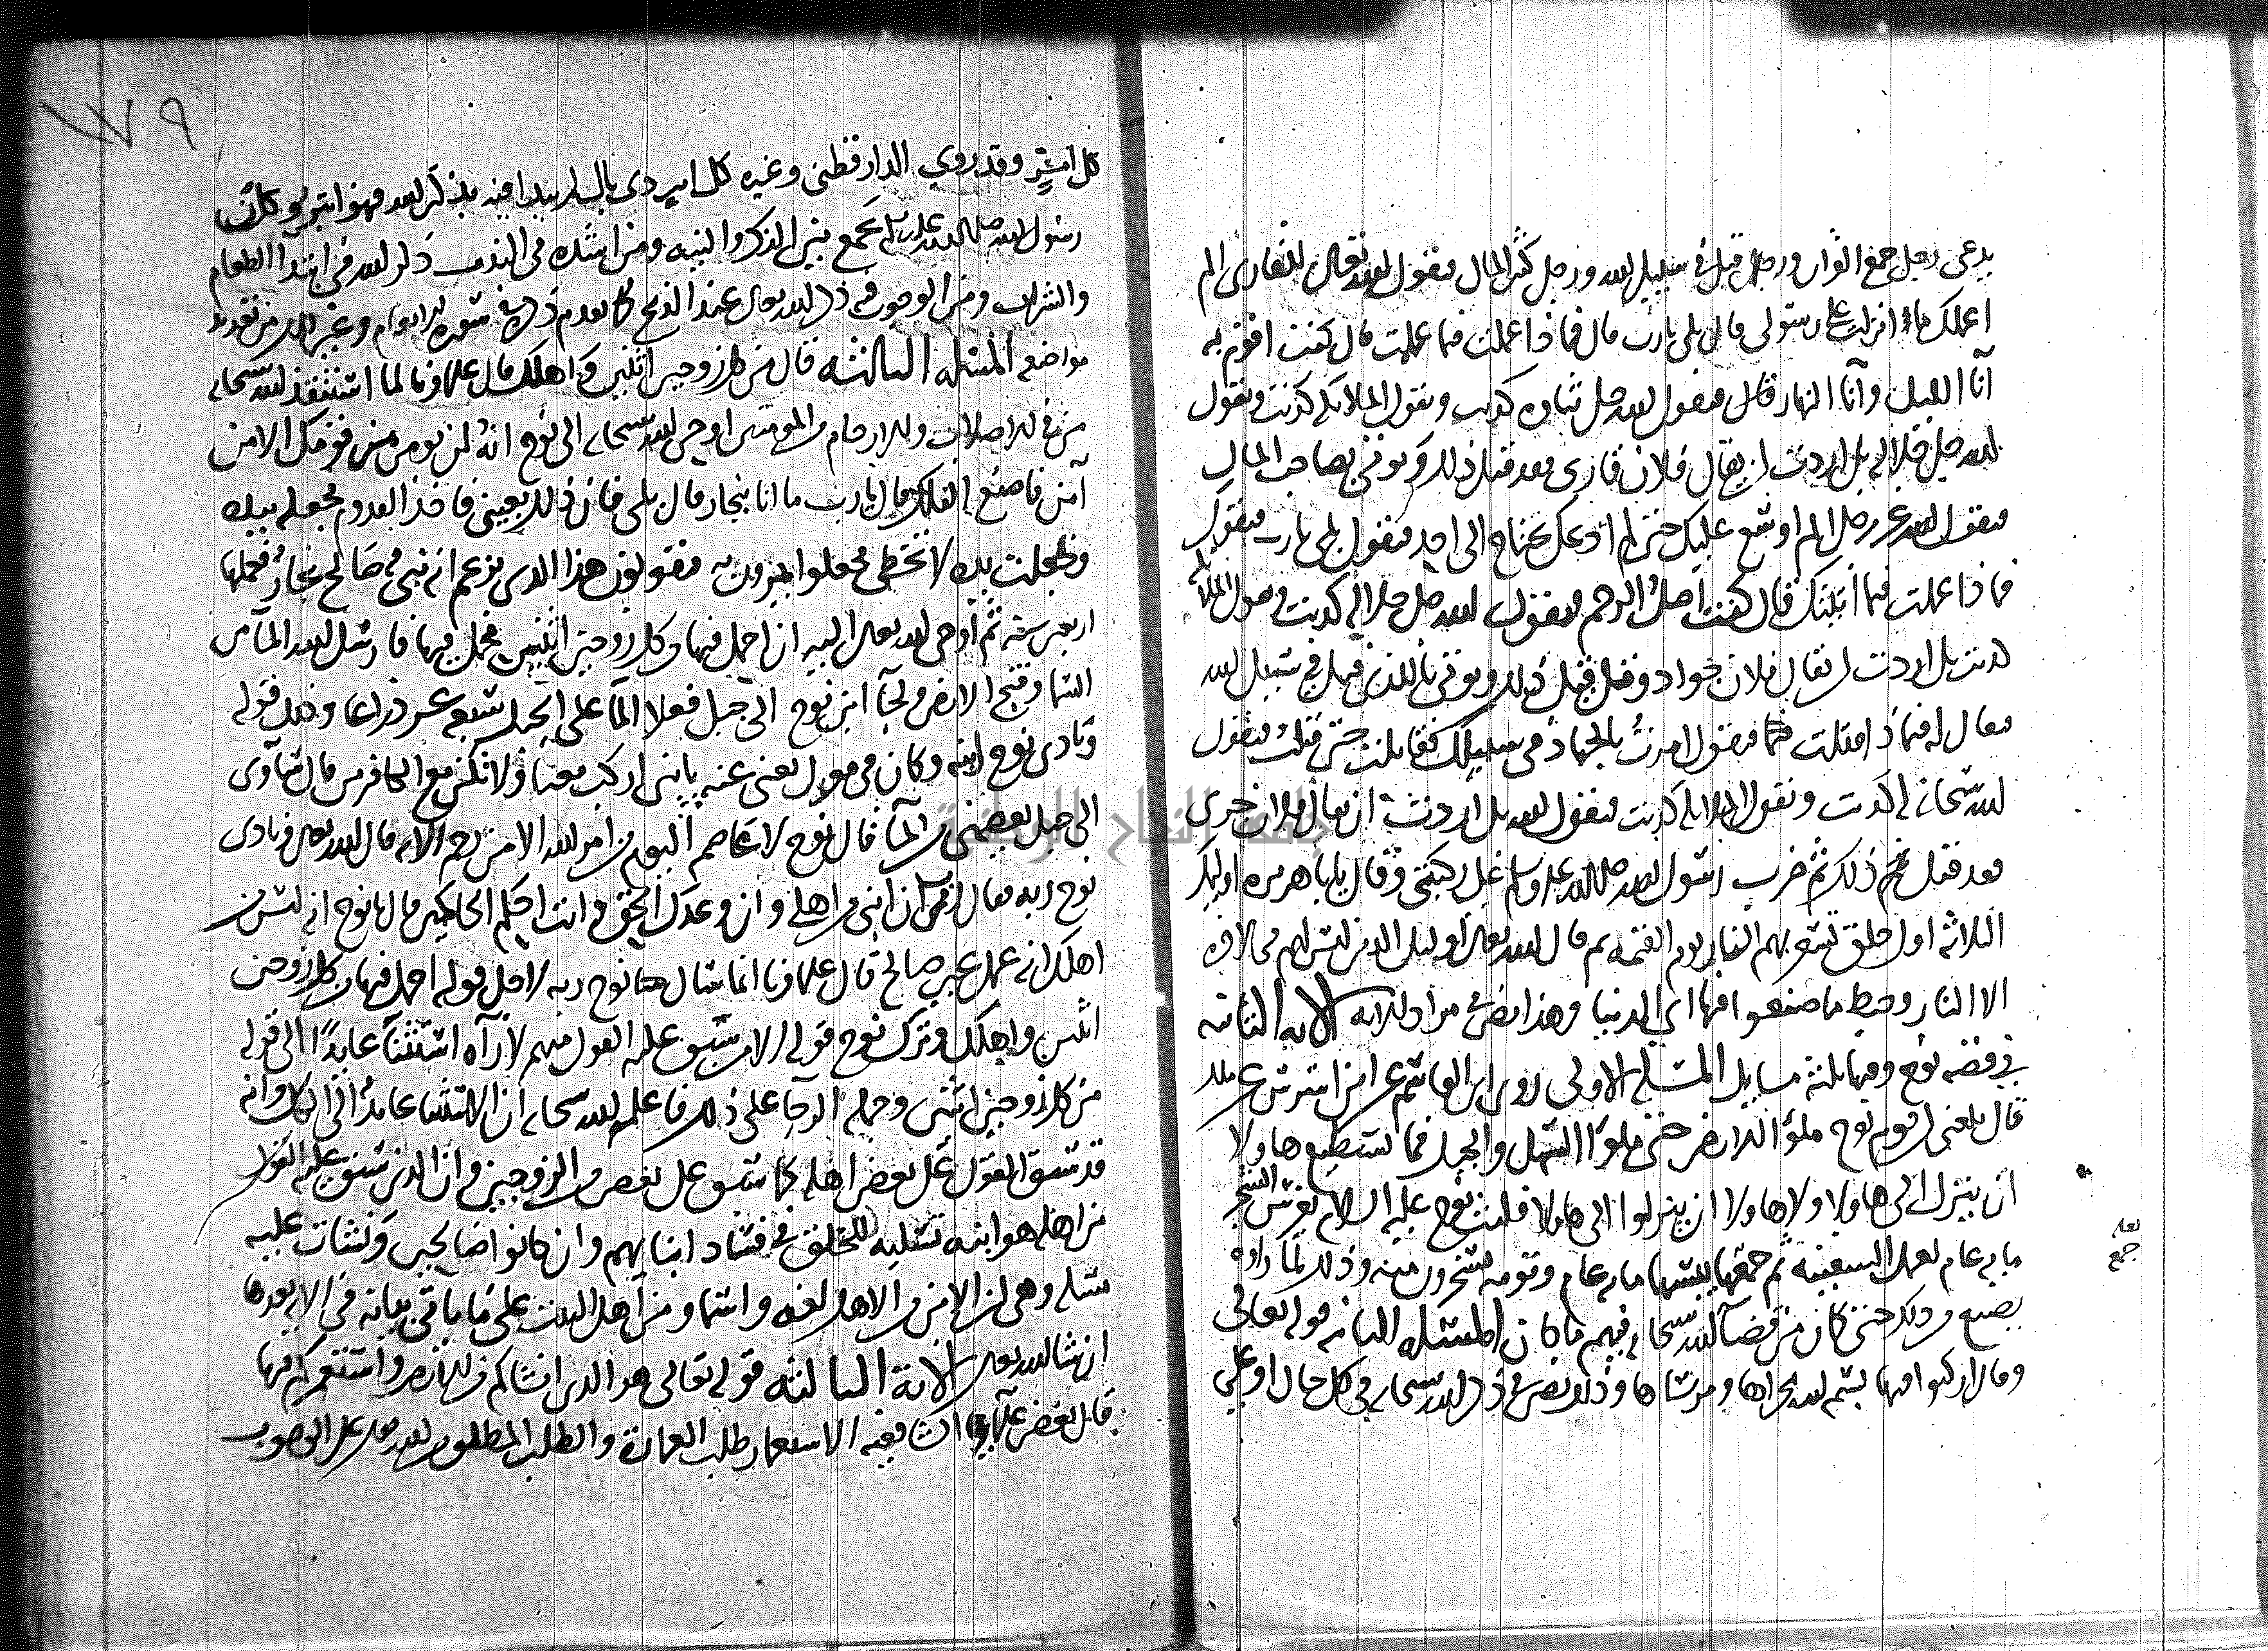 يدعى رجل جمع القران ورجل قتل في سبيل الله ورجل كثير المال فيقول الله تعالى للقارى الم
اعملك ما انزلت على رسولي قال بلى يارب قال فماذا عملت فيما علمت قال كنت اقوم به
آنا الليل وآنا النهار فيقول الله جل ثناوه كذبت وتقول الملايكة كذبت ويقول
الله جل جلاله بل اردت ان يقال فلان قارى فقد قيل ذلك ويوتى بصاحب المال
فيقول الله عز وجل الم اوسع عليك حتى لم ادعك تحتاج الى احد فيقول بلى يارب فيقول
فماذا عملت فيما اتيتك قال كنت اصل الرحم فيقول الله جل جلاله كذبت وتقول الملايكة
كذبت بل اردت ان يقال فلان جواد وقد قيل ذلك ويوتى بالذي قتل في سبيل الله
فيقال له فيماذا قتلت فيقول امرت بالجهاد في سبيلك فقاتلت حتى قتلت فيقول
الله سبحانه له كذبت وتقول الملايكة كذبت فيقول الله بل اردت ان يقال فلان جرى
فقد قيل ذلك ثم ضرب رسول الله صلى الله عليه وسلم على ركبتي وقال يابا هريره اوليك
الثلاثه اول خلق تسعر بهم النار يوم القيمه ثم قال الله تعالى اوليك الذين ليس لهم في الاخره
الا النار وحبط ما صنعوا فيها اي في الدنيا وهذا نص في مراد الايه الآيه الثانيه
في قصه نوح وفيها ثلثة مسايل المسلة الاولى روى ابن القاسم عن ابن اشرس عن ملك
قال بلغني ان قوم نوح ملوا الارض حتى ملوا السهل والجبل فما يستطيع هاولا
ان ينزل الى هاولا ولا هاولا ان ينزلوا الى هاولا فلبث نوح عليه السلام يغرس الشجر
مايه عام لعمل السفينه ثم جمعها ييبسها مايه عام وقومه يسخرون منه وذلك لما راوه
يصنع من ذلك حتى كان من قضا الله سبحانه فيهم ما كان المسئلة الثانيه قوله تعالى
وقال اركبوا فيها بسم الله مجراها ومرساها وذلك نص في ذكر الله سبحانه في كل حال او على
لعله
جمع
٧٧٩
كل امر وقد روى الدارقطني وغيره كل امر ذي بال لم يبدا فيه بذكر الله فهو ابتر وكان
رسول الله صلى الله عليه وسلم يجمع بين الذكر والنيه ومن اشده في الندب ذكر الله في ابتدا الطعام
والشراب ومن الوجوب فيه ذكر الله تعالى عند الذبح كما تقدم ذكره في سوره الانعام وغير ذلك من تعديد
مواضعه المسئلة الثالثه قال من كل زوجين اثنين واهلك قال علماونا لما استنقذ الله سبحانه
من في الاصلاب والارحام من المومنين اوحى الله سبحانه الى نوح انه لن يومن من قومك الا من
آمن فاصنع الفلك قال يارب ما انا بنجار قال بلى فان ذلك بعيني فاخذ القدوم فجعله بيده
وجعلت يده لا تخطى فجعلوا يمرون به فيقولون هذا الذي يزعم انه نبي صار نجارا فعملها
اربعين سنه ثم اوحى الله تعالى اليه ان احمل فيها من كل زوجين اثنين فحمل فيها فارسل الله الما من
السما وفتح الارض ولجا ابن نوح الى جبل فعلا الما على الجبل سبعه عشر ذراعا وذلك قوله
ونادى نوح ابنه وكان في معزل يعني عنه يابني اركب معنا ولا تكن مع الكافرين قال ساوى
الى جبل يعصمني من الما قال نوح لا عاصم اليوم من امر الله الا من رحم الايه قال الله تعالى ونادى
نوح ربه فقال رب ان ابني من اهلي وان وعدك الحق وانت احكم الحاكمين قال يا نوح انه ليس من
اهلك انه عمل غير صالح قال علماونا انما سال نوح ربه لاجل قوله احمل فيها من كل زوجين
اثنين واهلك وترك نوح قوله الا من سبق عليه القول منهم لانه رآه استثنا عايدا الى قوله
من كل زوجين اثنين وحمله الرجا على ذلك فاعلمه الله سبحانه ان الاستثنا عايد الى الكل وانه
قد سبق القول على بعض اهله كما سبق على بعض من الزوجين وان الذي سبق عليه القول
من اهله هو ابنه تسليه للخلق في فساد ابنايهم وان كانوا صالحين ونشات عليه
مسله وهي ان الابن من الاهل لغه واسما ومن اهل البيت على ما ياتى بيانه في الايه بعدها
ان شا الله تعالى الآية الثالثه قوله تعالى هو الذي انشاكم من الارض واستعمركم فيها
قال بعض علما الشافعيه الاستعمار طلب العمارة والطلب المطلق من الله تعالى على الوجوب